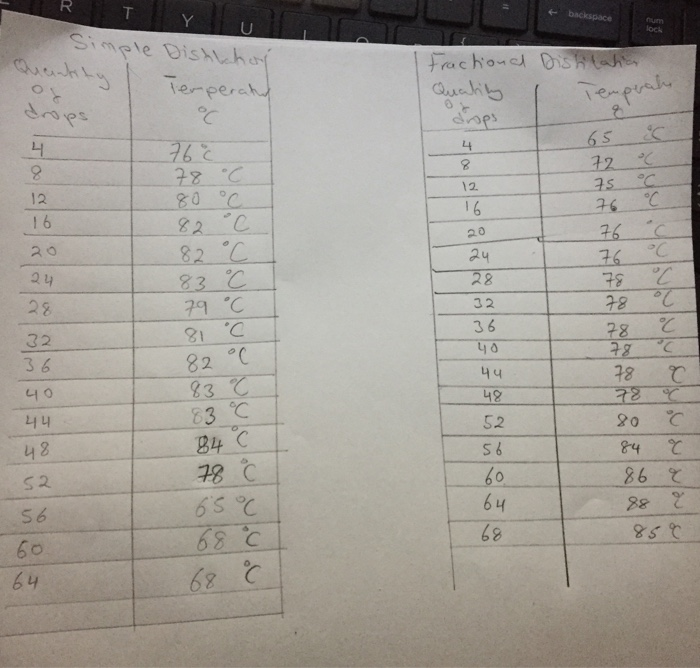 R T Y U
backspace
num
lock
Simple Distillation
Quantity
of
drops
Temperature
°C
4 76°C
8 78 °C
12 80 °C
16 82 °C
20 82 °C
24 83 °C
28 79 °C
32 81 °C
36 82 °C
40 83 °C
44 83 °C
48 84 °C
52 78 °C
56 65 °C
60 68 °C
64 68 °C
Fractional Distilation
Quatity
of
drops
Temperatu
4 65 °C
8 72 °C
12 75 °C
16 76 °C
20 76 °C
24 76 °C
28 78 °C
32 78 °C
36 78 °C
40 78 °C
44 78 °C
48 78 °C
52 80 °C
56 84 °C
60 86 °C
64 88 °C
68 85 °C